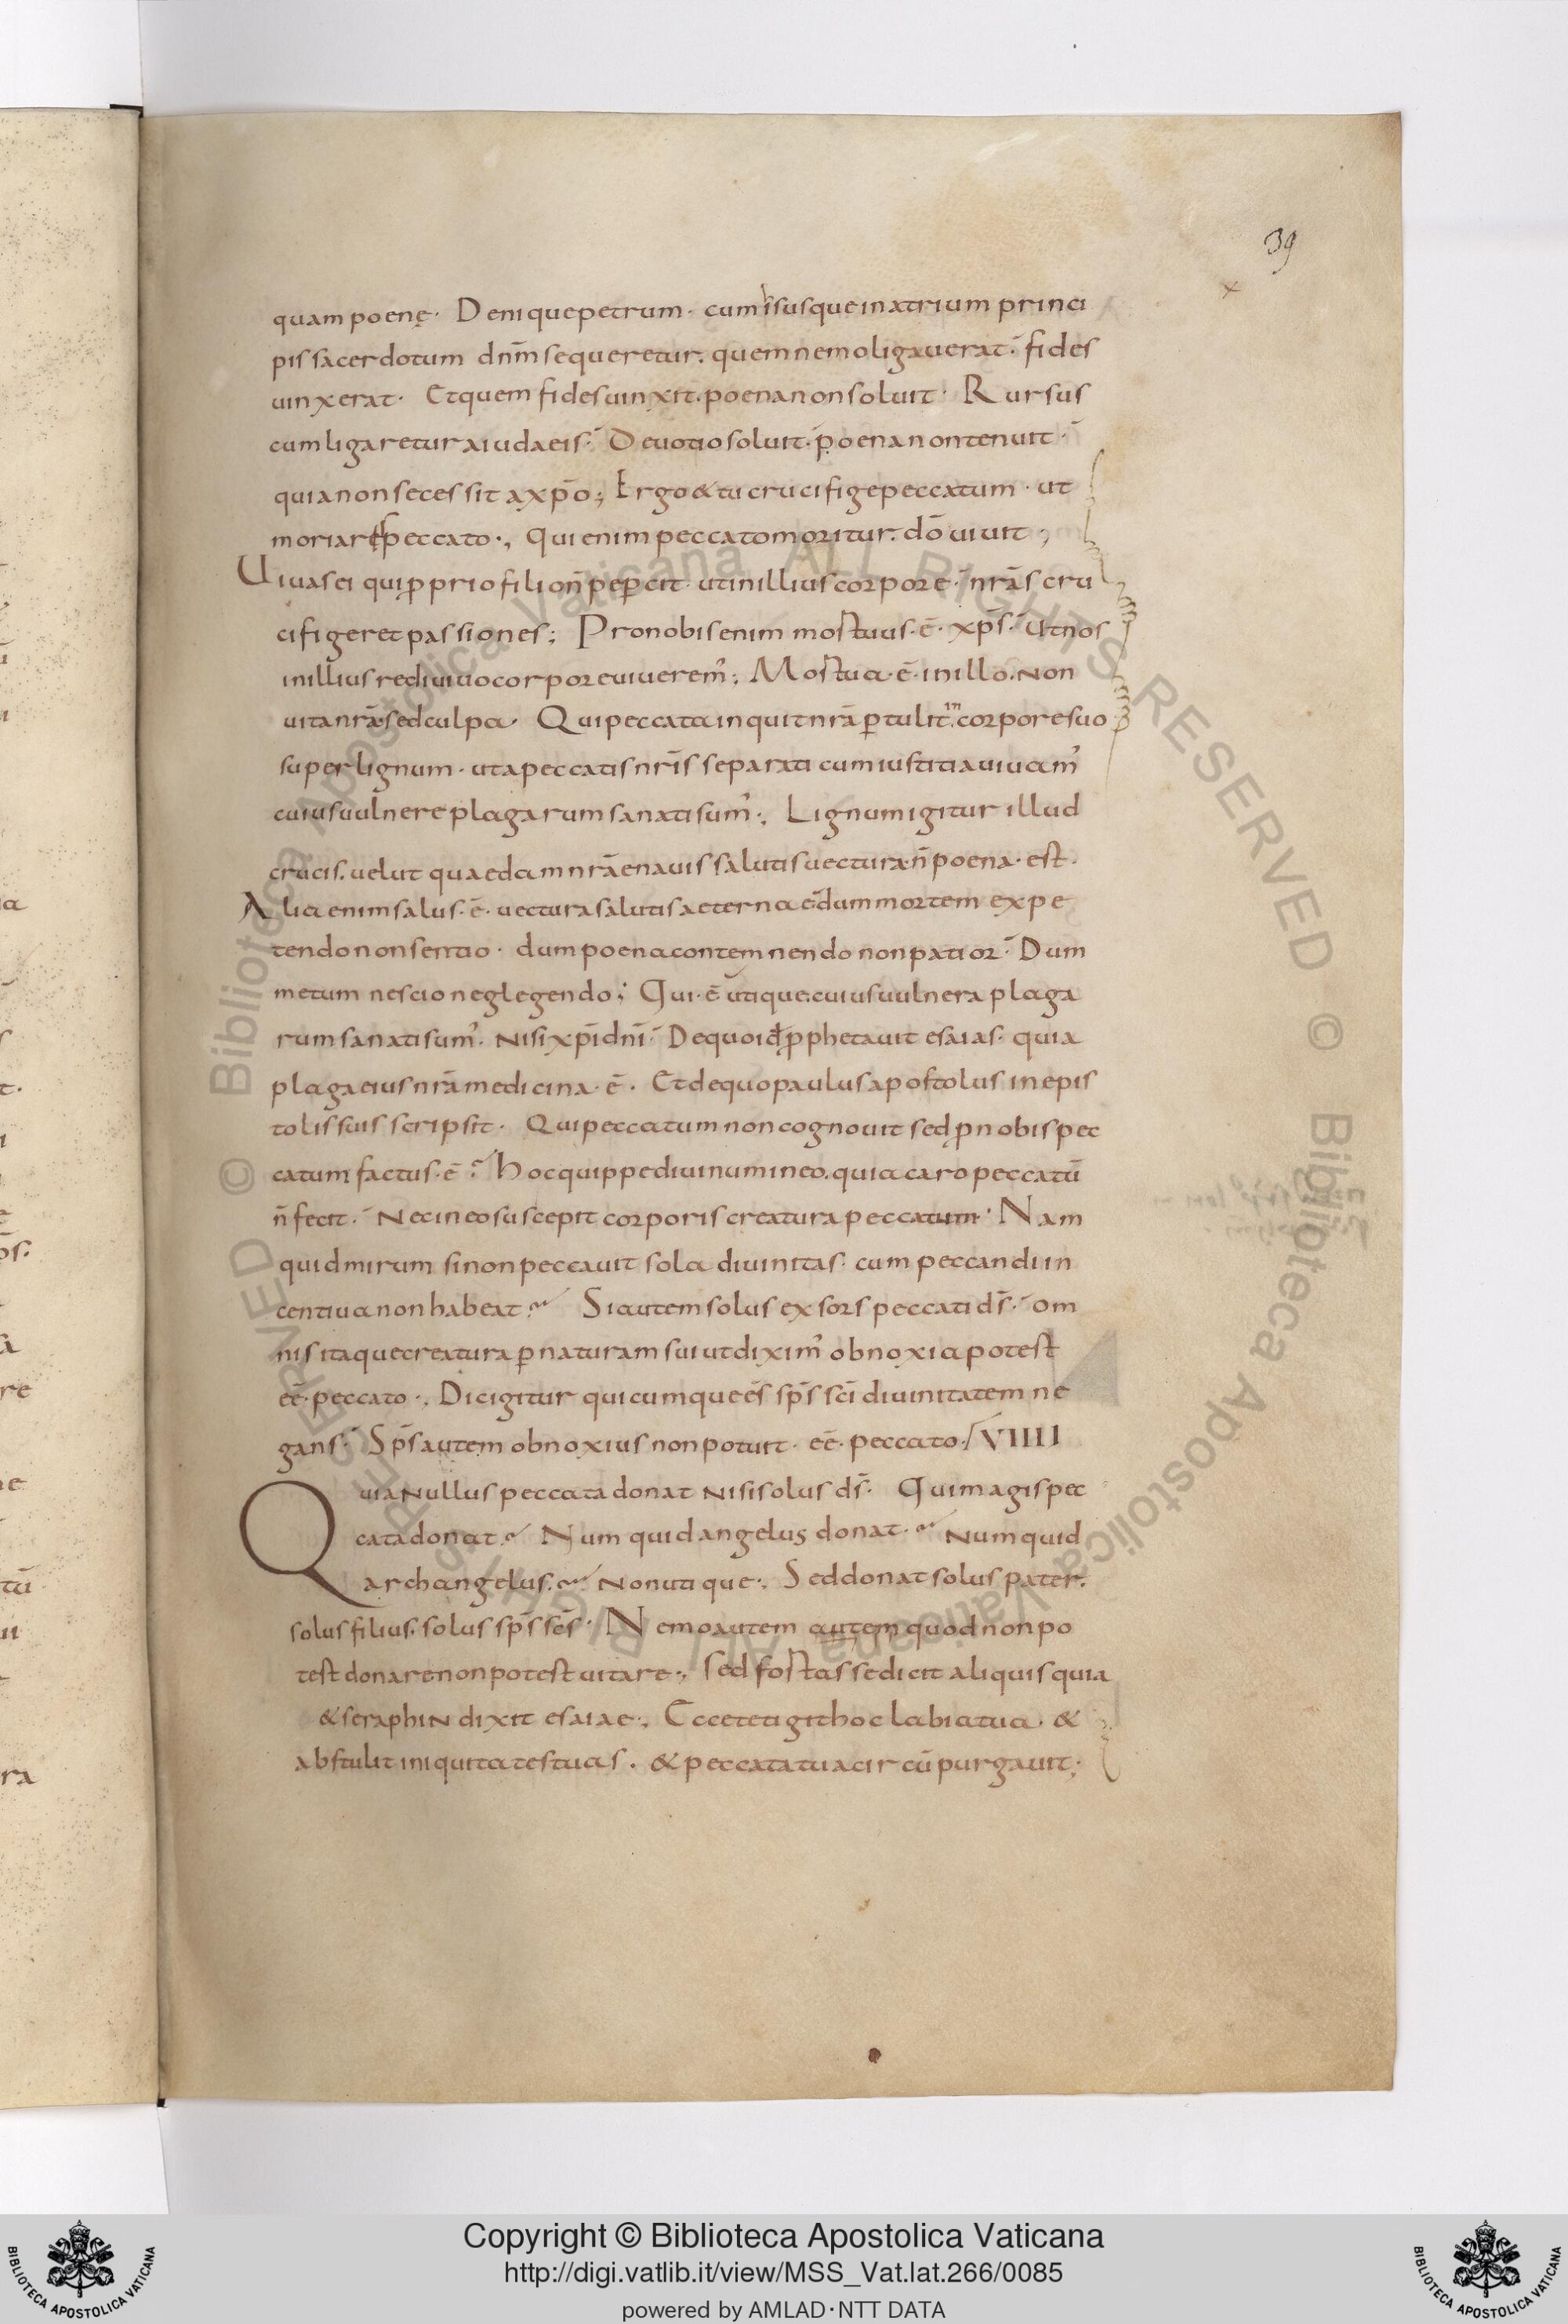 39
quam poenę· Denique petrum· cum ísusque in atrium princi
pis sacerdotum dn̄m sequeretur. quem nemo ligauerat·́ fides
uinxerat· Et quem fides uinxit· poena non soluit· Rursus
cum ligaretur a iudaeis·́ Deuotio soluit· poena non tenuit·́
quia non secessit a xp̄o; Ergo & tu crucifige peccatum· ut
moriare peccato·, Qui enim peccato moritur· dō uiuit;
Uiuas ei qui ꝓprio filio n̄ peꝑcit· ut in illius corpore·́ nr̄as cru
cifigeret passiones; Pro nobis enim mortuus·ē· xp̄s·́ Ut nos
in illius rediuiuo corpore uiuerem̓; Mortua·ē·in illo· Non
uita nr̄a· sed culpa· Qui peccata inquit nr̄a ꝑtulit in corpore suo
super lignum· ut a peccatis nr̄is separati cum iustitia uiuam̓
cuius uulnere plagarum sanati sum̓·, Lignum igitur illud
crucis. uelut quaedam nr̄ae nauis salutis uectura· n̄ poena·est·
Alia enim salus·ē· uectura salutis aeternae· dum mortem expe
tendo non sentio· dum poena contemnendo non patior·́ Dum
metum nescio neglegendo; Qui·ē utique· cuius uulnera plaga
rum sanati sum̓· Nisi xp̄i dn̄i·́ De quo id ꝓphetauit esaias· quia
plaga eius nr̄a medicina·ē· Et de quo paulus apostolus in epis
tolis suis scripsit· Qui peccatum non cognouit sed ꝓ nobis pec
catum factus·ē·́ Hoc quippe diuinum in eo· quia caro peccatū
n̄ fecit·́ Nec in eo suscepit corporis creatura peccatum· Nam
quid mirum si non peccauit sola diuinitas· cum peccandi in
centiua non habeat? Si autem solus exsors peccati d̄s·́ om
nis itaque creatura ꝑ naturam sui ut dixim̓ obnoxia potest
eē· peccato·, Dic igitur quicumque es sp̄s sc̄i diuinitatem ne
gans·́ Sp̄s autem obnoxius non potuit· eē· peccato·/ VIIII
Quia Nullus peccata donat Nisi solus d̄s· Qui magis pec
cata donat? Numquid angelus donat? Numquid
archangelus? Non utique·, Sed donat solus pater·
solus filius· solus sp̄s sc̄s· Nemo autem autem quod non po
test donare non potest uitare·, Sed fortasse dicit aliquis quia
& seraphiN dixit esaiae·, Ecce tetigit hoc labia tua· &
abstulit iniquitates tuas· & peccata tua circū purgauit;
Copyright © Biblioteca Apostolica Vaticana
http://digi.vatlib.it/view/MSS_Vat.lat.266/0085
powered by AMLAD·NTT DATA